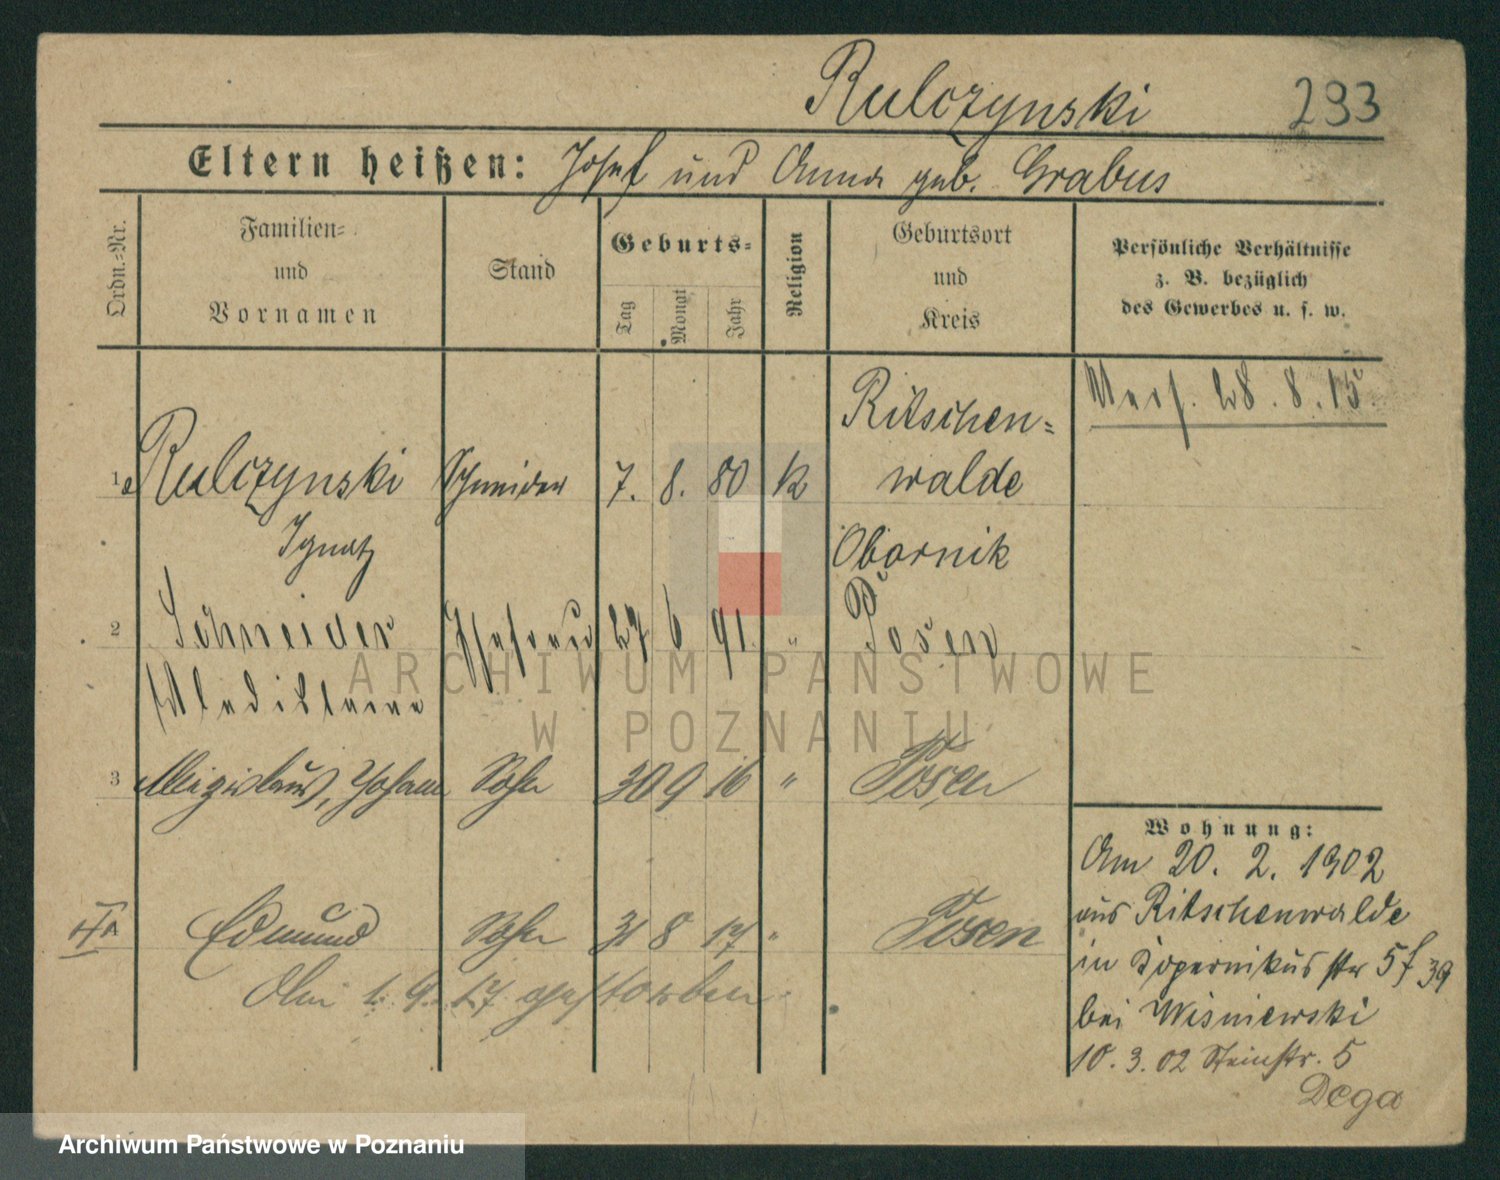 Rulczynski 293
Eltern heißen: Josef und Anna geb. Grabus
Ordn.-Nr.
Familien-
und
Vornamen
Stand
Geburts-
Tag
Monat
Jahr
Religion
Geburtsort
und
Kreis
Persönliche Verhältnisse
z. B. bezüglich
des Gewerbes u. s. w.
28. 8. 15.
Ritschen-
1 Rulczynski Schneider 7. 8. 80 k walde
Ignatz Obornik
2 Schneider 27 6 91. " Posen
Wladislawa
3 Johann Sohn 30 9 16 " Posen
Edmund Sohn 31 8 17 " Posen
Am 1. 9. 17 gestorben
Wohnung:
Am 20. 2. 1902
aus Ritschenwalde
in Kopernikus str 5 f 39
bei Wisniewski
10. 3. 02 Steinstr. 5
Dega
ARCHIWUM PAŃSTWOWE
W POZNANIU
Archiwum Państwowe w Poznaniu